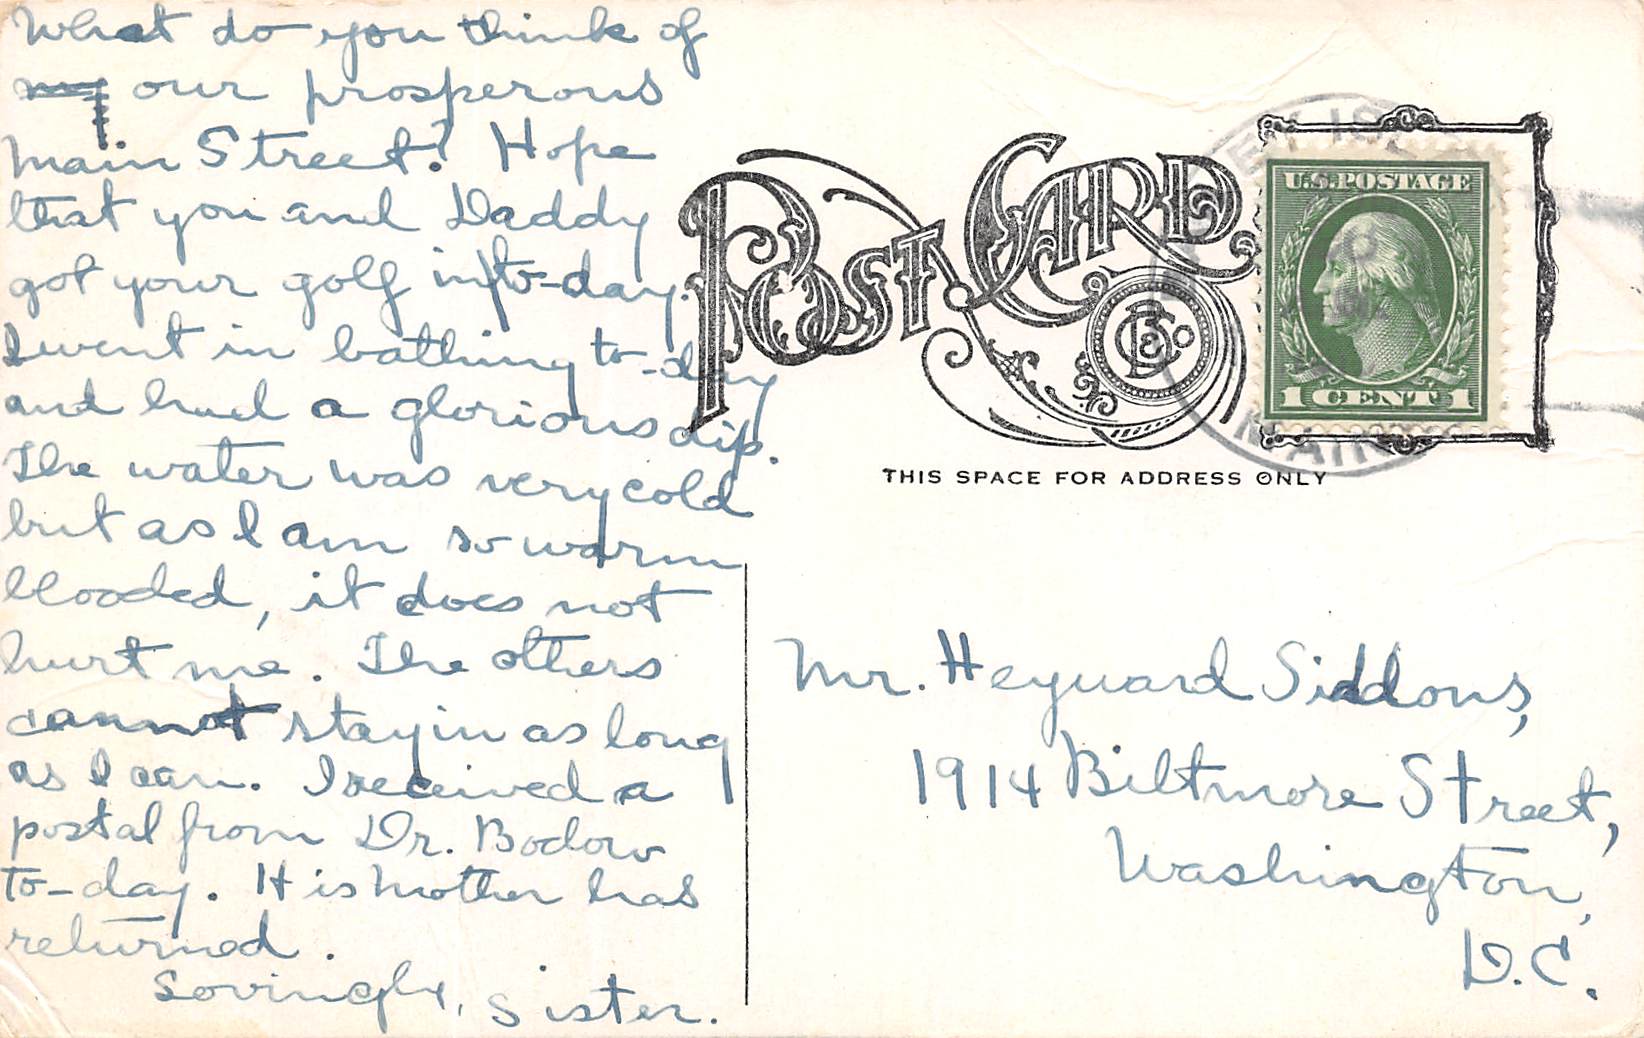 What do you think of
my our prosperous
Main Street? Hope
that you and Daddy
got your golf in to-day.
I went in bathing to-day
and had a glorious dip.
The water was very cold
but as I am so warm
blooded, it does not
hurt me. The others
cannot stay in as long
as I can. I received a
postal from Dr. Bodow
to-day. His mother has
returned.
Lovingly, Sister.
POST CARD
U.S. POSTAGE
1 CENT 1
THIS SPACE FOR ADDRESS ONLY
Mr. Heyward Siddons,
1914 Biltmore Street,
Washington,
D.C.